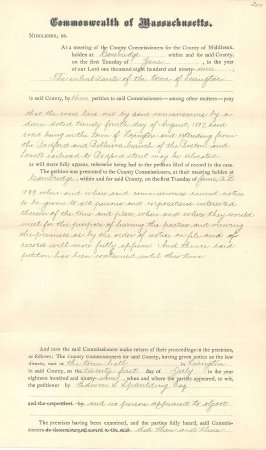 Commonwealth of Massachusetts.
MIDDLESEX, SS.
At a meeting of the County Commissioners for the County of Middlesex,
holden at Cambridge within and for said County,
on the first Tuesday of June in the year
of our Lord one thousand eight hundred and ninety-
The inhabitants of the Town of Lexington
in said County, by their petition to said Commissioners—among other matters—pray
that the road laid out by said commissioners by a
decree dated twenty fourth day of August, 1897, said
road being in the town of Lexington and extending from
the Bedford and Billerica branch of the Boston and
Lowell railroad to Bedford street may be relocated
as will more fully appear, reference being had to the petition filed of record in the case.
The petition was presented to the County Commissioners, at their meeting holden at
Cambridge, within and for said County, on the first Tuesday of June, A.D.
1899 when and where said commissioners caused notice
to be given to all persons and corporations interested
therein of the time and place, when and where they would
meet for the purpose of hearing the parties and viewing
the premises as by the order of notice on file and of
record will more fully appear. And thence said
petition has been continued until this time.
And now the said Commissioners make return of their proceedings in the premises,
as follows: The County Commissioners for said County, having given notice as the law
directs, met at the town hall in Lexington
in said County, on the twenty first day of July in the year
eighteen hundred and ninety- when and where the parties appeared, to wit,
the petitioner by Edwin A. Spaulding, Esq.
and the respondent by and no person appeared to object
The premises having been examined, and the parties fully heard, said Commis-
sioners as determining of award to the said did then and there